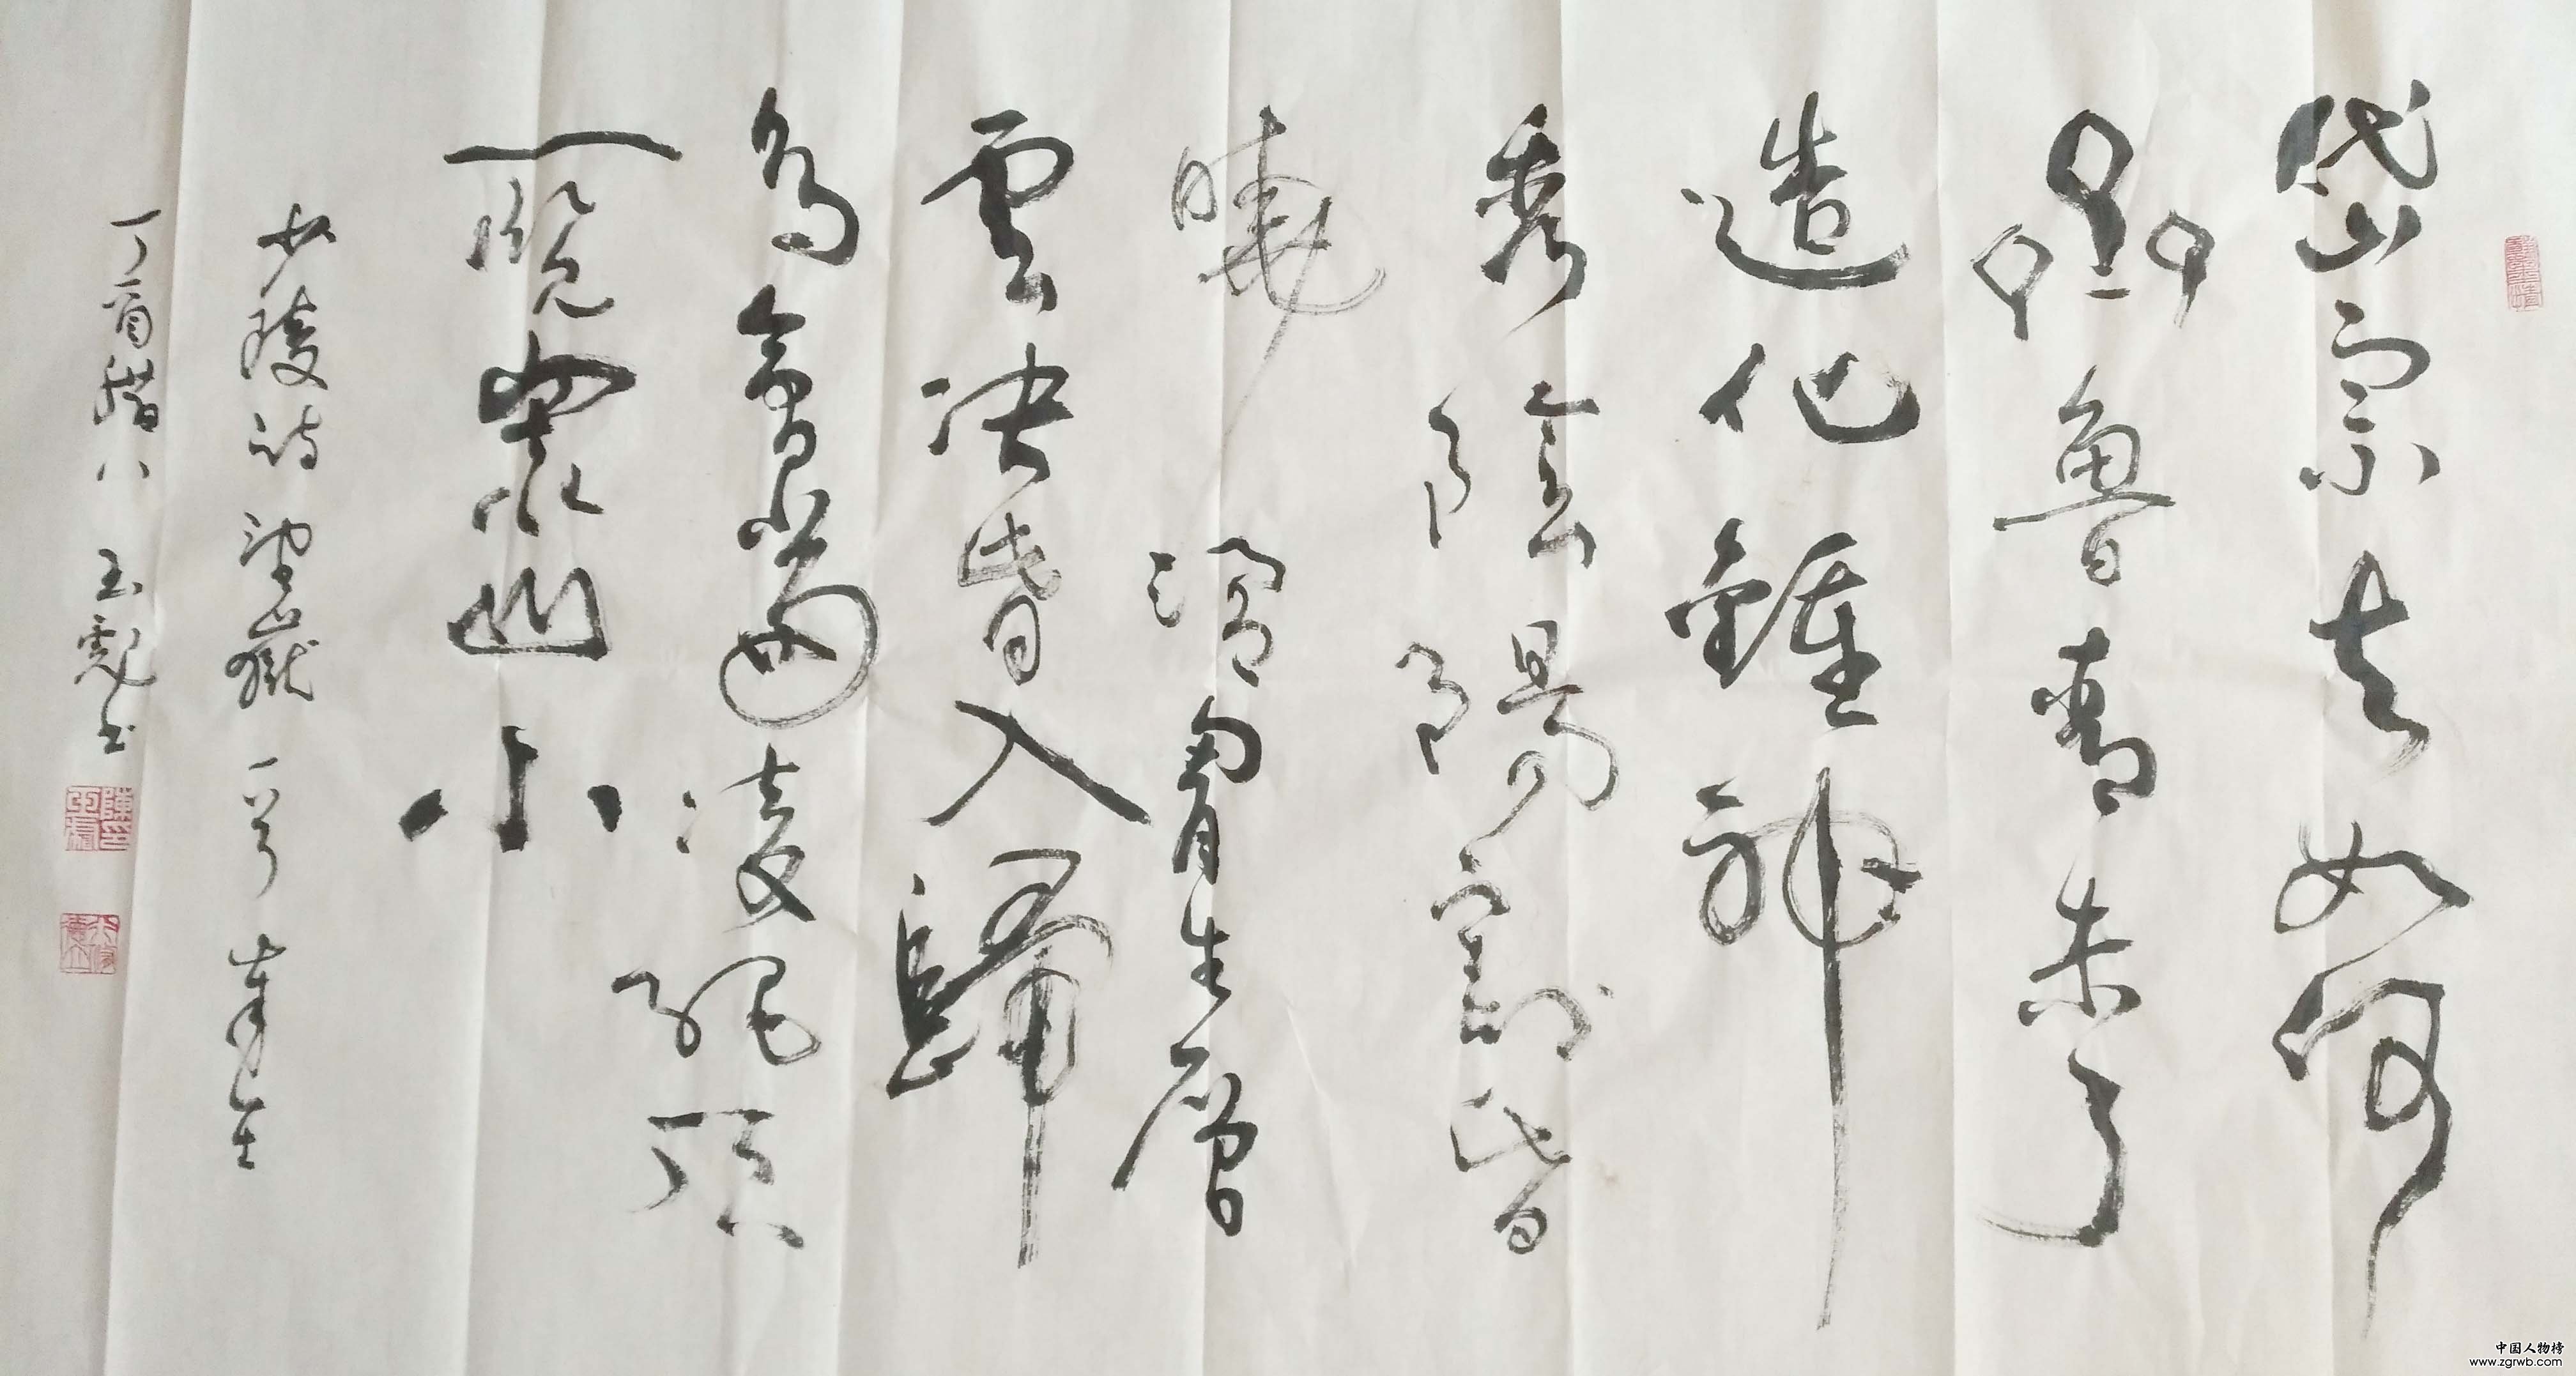 岱宗夫如何
齊魯青未了
造化鍾神
秀陰陽割昏
曉盪胷生層
雲決眥入歸
鳥會當凌絕頂
一覽衆山小
少陵詩望嶽一
丁酉腊八 玉彪书
中国人物榜
www.zgrwb.com